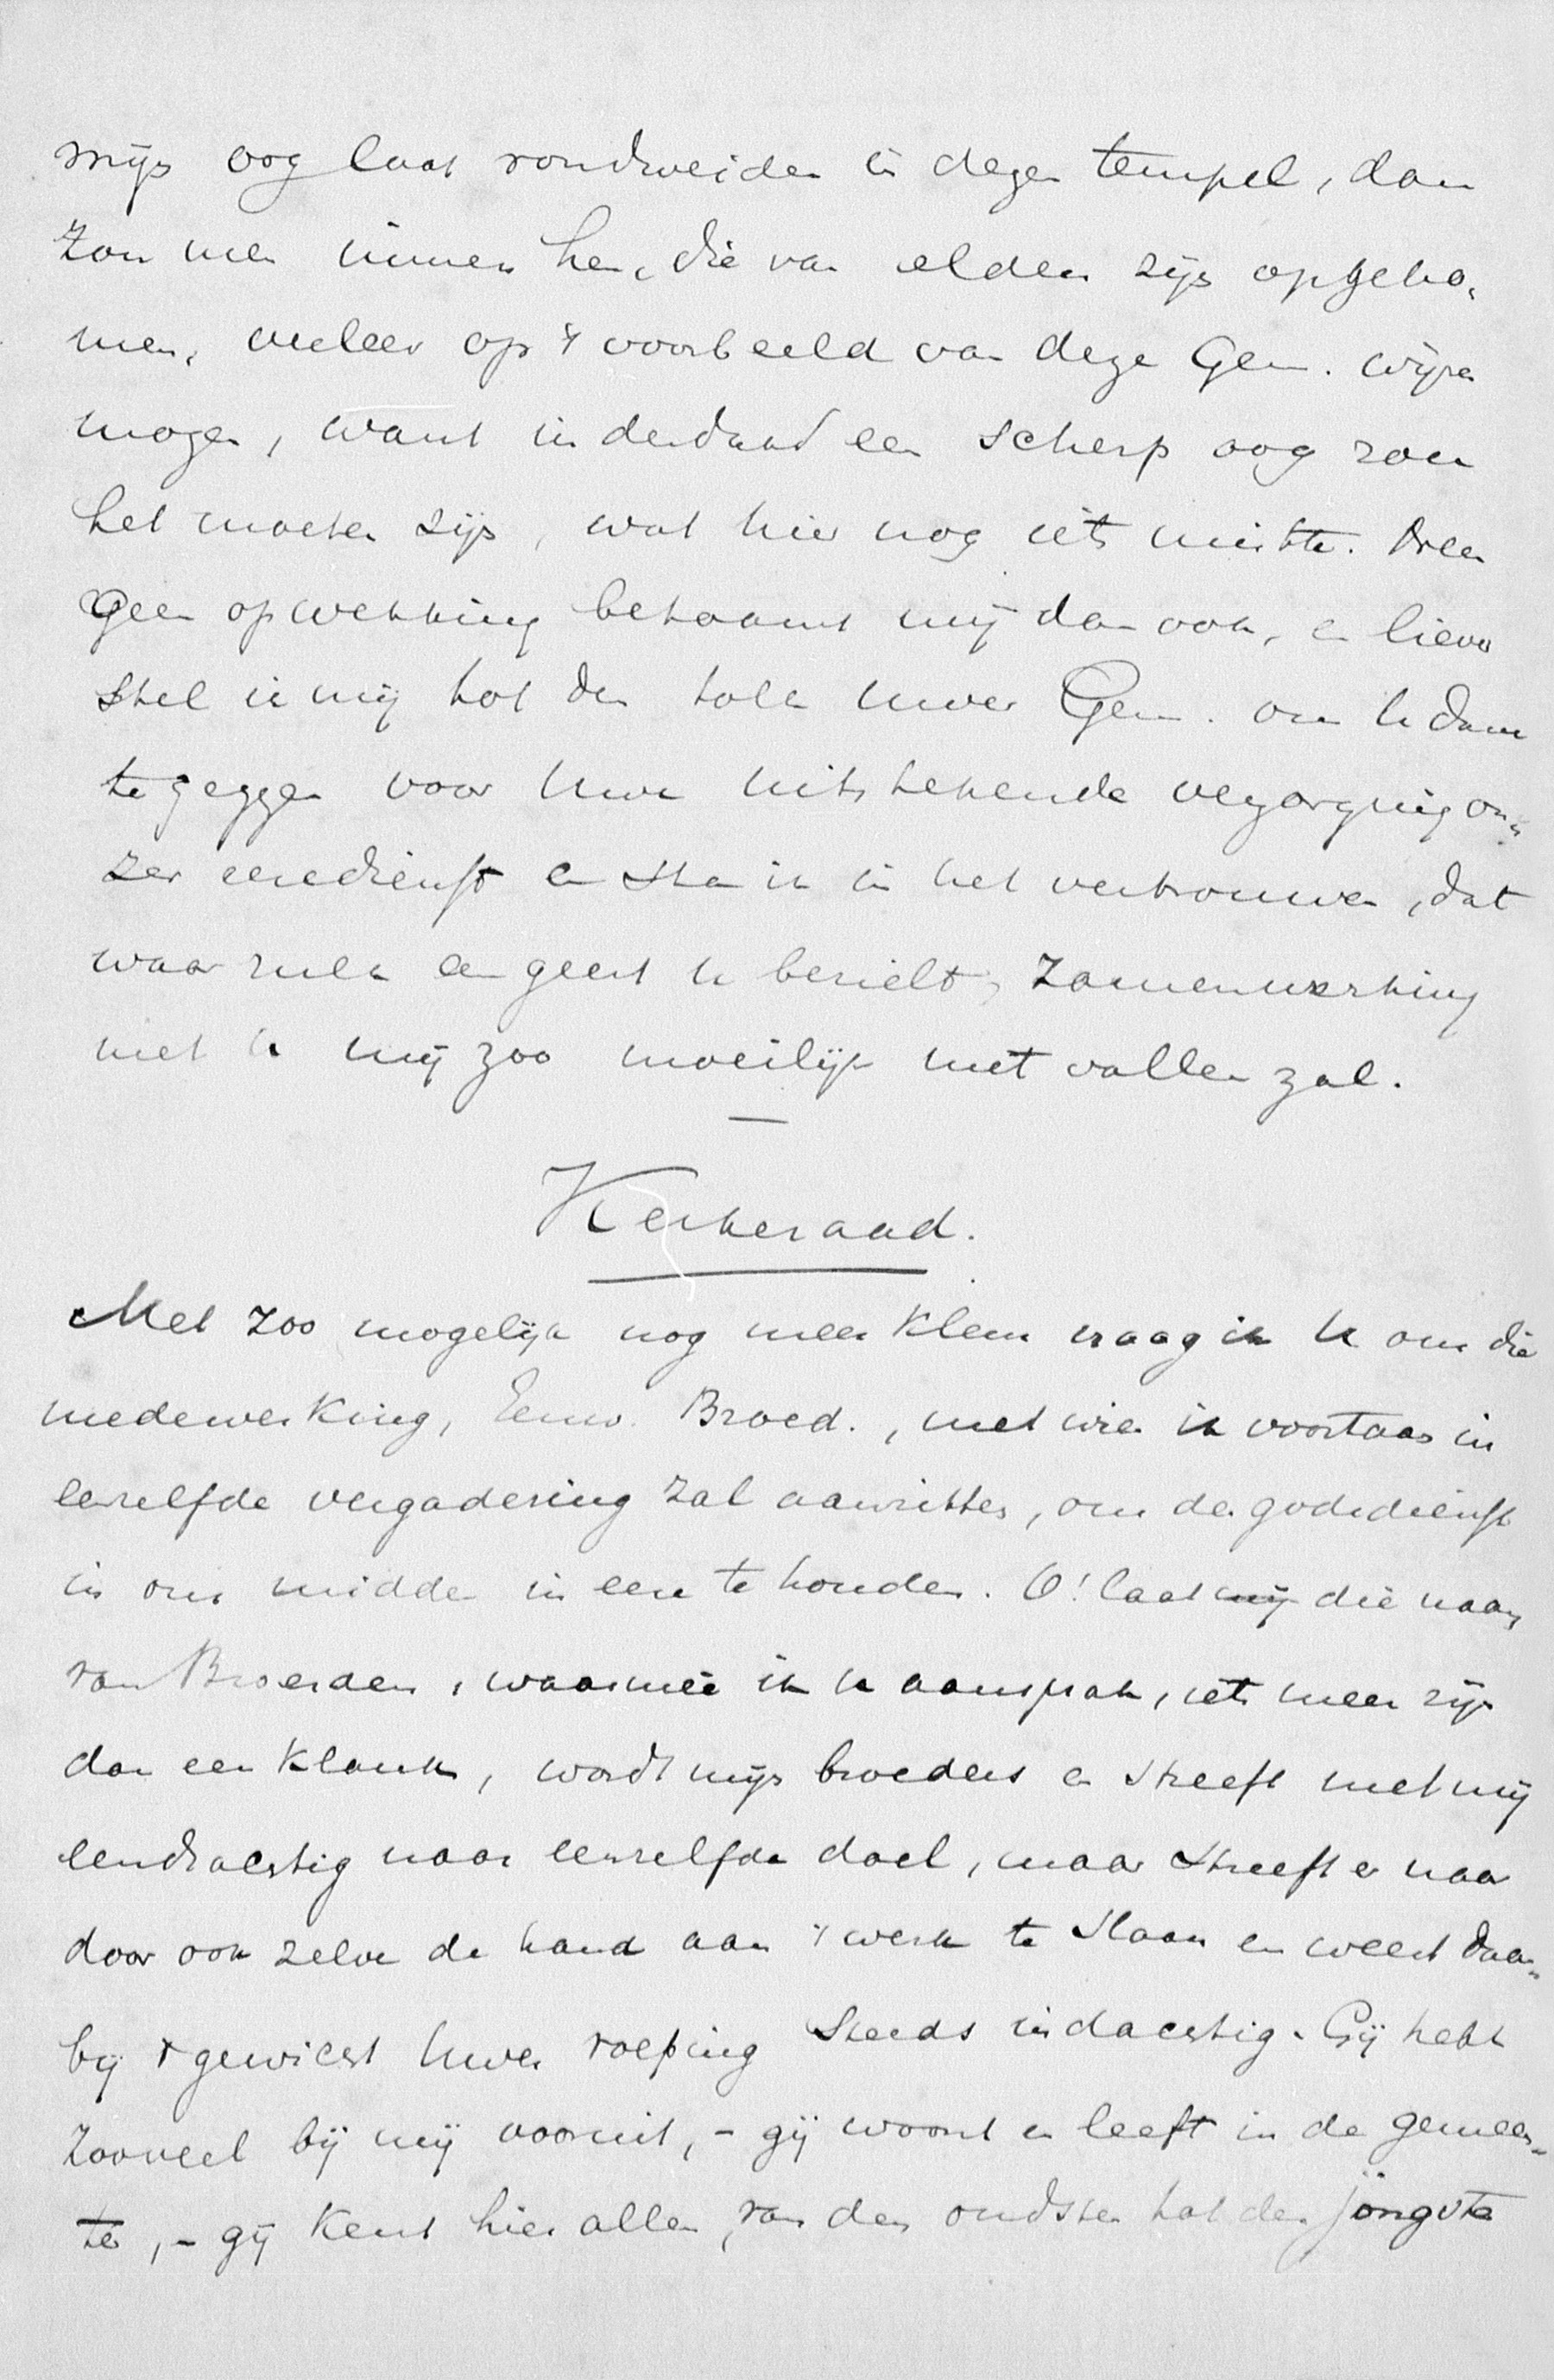 mijn oog laat rondweiden in dezen tempel, dan
zou men immers hen, die van elders zijn opgeko-
men, veeleer op 't voorbeeld van deze Gem. wijzen
mogen, want inderdaad een scherp oog zou
het moeten zijn, wat hier nog iets miste.
Geen opwekking betaamt mij dan ook, en liever
stel ik mij tot den tolk uwer Gem. om U dank
te zeggen voor Uwe uitstekende verzorging on-
zer eeredienst en sta ik in het vertrouwen, dat
waar zulk een geest U bezielt, zamenwerking
met U mij zoo moeilijk niet vallen zal.
Kerkeraad.
Met zoo mogelijk nog meer klem vraag ik U om die
medewerking, Eerw. Broed., met wien ik voortaan in
eenzelfde vergadering zal aanzitten, om de godsdienst
in ons midden in eere te houden. O! laat mij die naam
van Broeders, waarmeê ik U aansprak, iets meer zijn
dan een klank, wordt mijn broeders en streeft met mij
eendrachtig naar eenzelfde doel, maar streeft er naar
door ook zelve de hand aan 't werk te slaan en weest daar-
bij 't gewicht Uwer roeping steeds indachtig. Gij hebt
zooveel bij mij vooruit, - gij woont en leeft in de gemeen-
te, - gij kent hier allen, van den oudsten tot den jongste